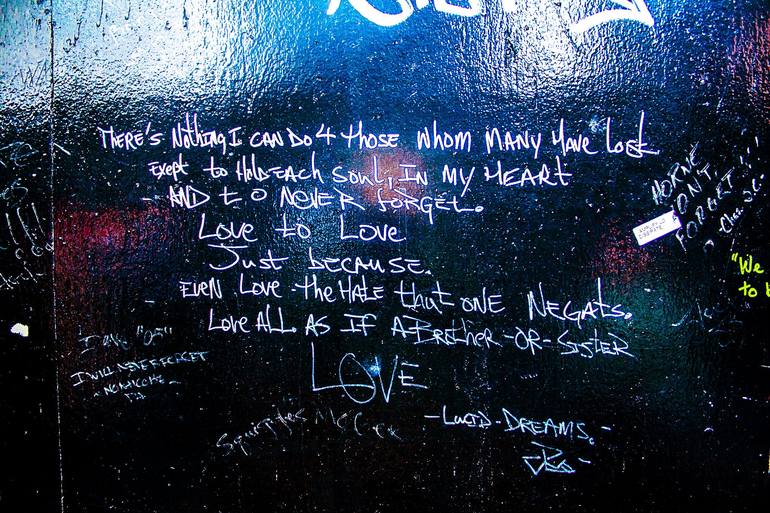 THERE'S NOTHING I CAN DO 4 THOSE WHOM MANY HAVE LOST
EXEPT to HOLD EACH SOUL, IN MY HEART
- AND tO NEVER FORGET.
LOVE to LOVE
Just because.
EVEN LOVE the HATE that ONE NEGATS.
LOVE ALL AS IF A BROTHER-OR-SISTER
LOVE
-LUCID-DREAMS.-
HORNE
DON'T
FORGET!!!
"We
to b
I WILL NEVER FORGET